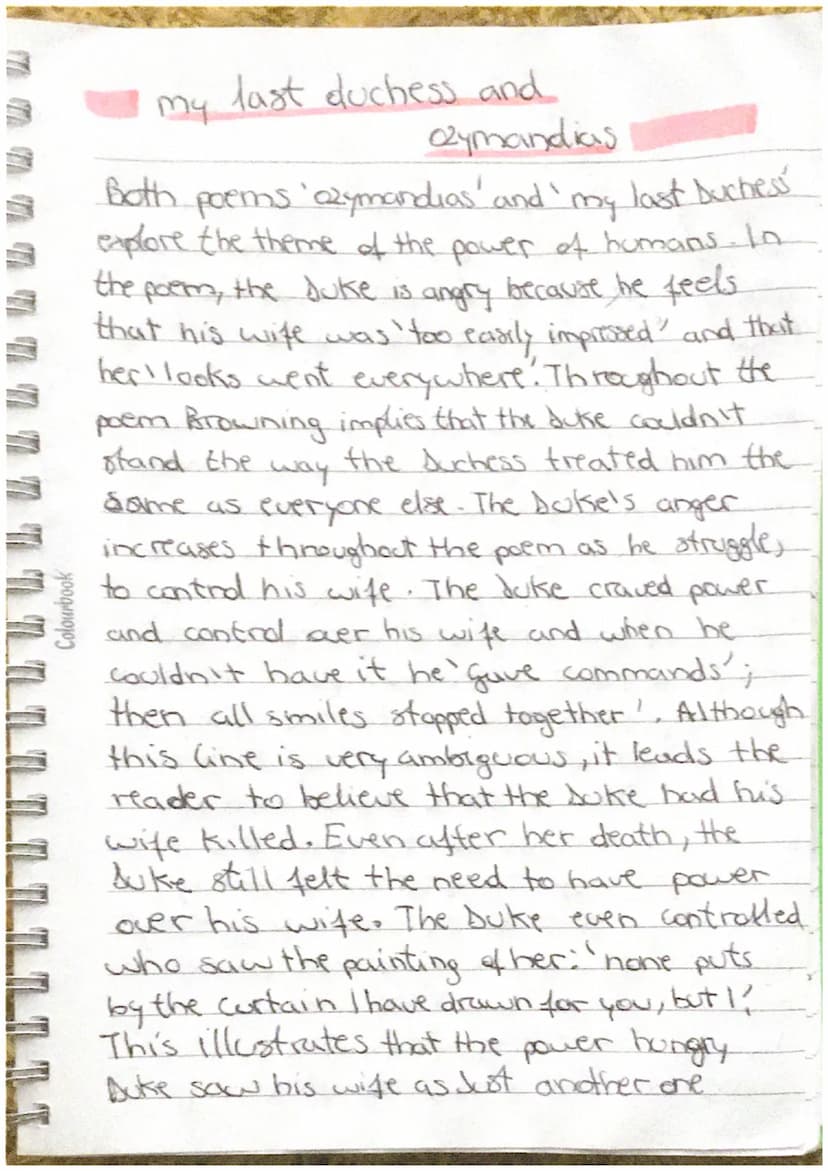 my last duchess and
ozymandias
Both poems 'ozymandias' and 'my last Duchess'
explore the theme of the power of humans. In
the poem, the Duke is angry because he feels
that his wife was 'too easily impressed' and that
her 'looks went everywhere'. Throughout the
poem Browning implies that the Duke couldn't
stand the way the Duchess treated him the
same as everyone else. The Duke's anger
increases throughout the poem as he struggles
to control his wife. The Duke craved power
and control over his wife and when he
couldn't have it he 'gave commands';
then all smiles stopped together'. Although
this line is very ambiguous, it leads the
reader to believe that the Duke had his
wife killed. Even after her death, the
Duke still felt the need to have power
over his wife. The Duke even controlled
who saw the painting of her: 'none puts
by the curtain I have drawn for you, but I'.
This illustrates that the power hungry
Duke saw his wife as Just another one
Colourbook